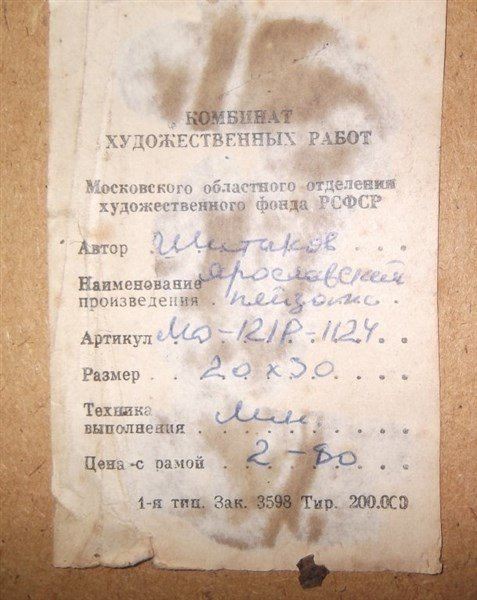 КОМБИНАТ
ХУДОЖЕСТВЕННЫХ РАБОТ
Московского областного отделения
художественного фонда РСФСР
Автор Шитиков
Наименование Ярославский
произведения пейзаж
Артикул МО-121Р-1124
Размер 20 x 30
Техника
выполнения
Цена с рамой 2-80
1-я тип. Зак. 3598 Тир. 200.000